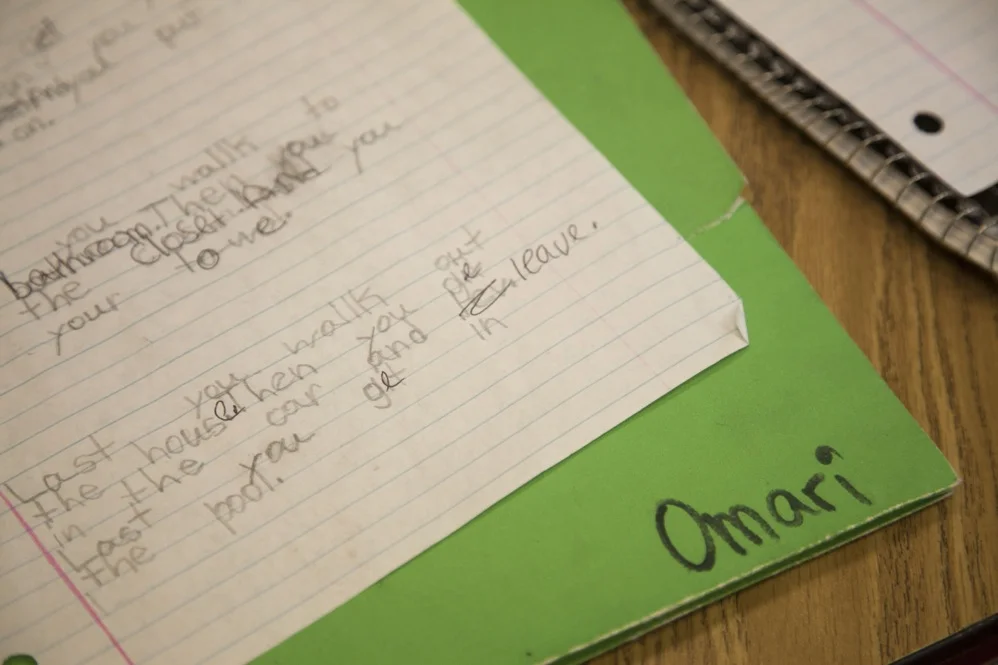 you put
on.
you wallk to
bathroom. Then you
the closet. and you
your towel.
Last you wallk out
the house then you get
in the car and leave.
Last you get in
the pool.
Omari